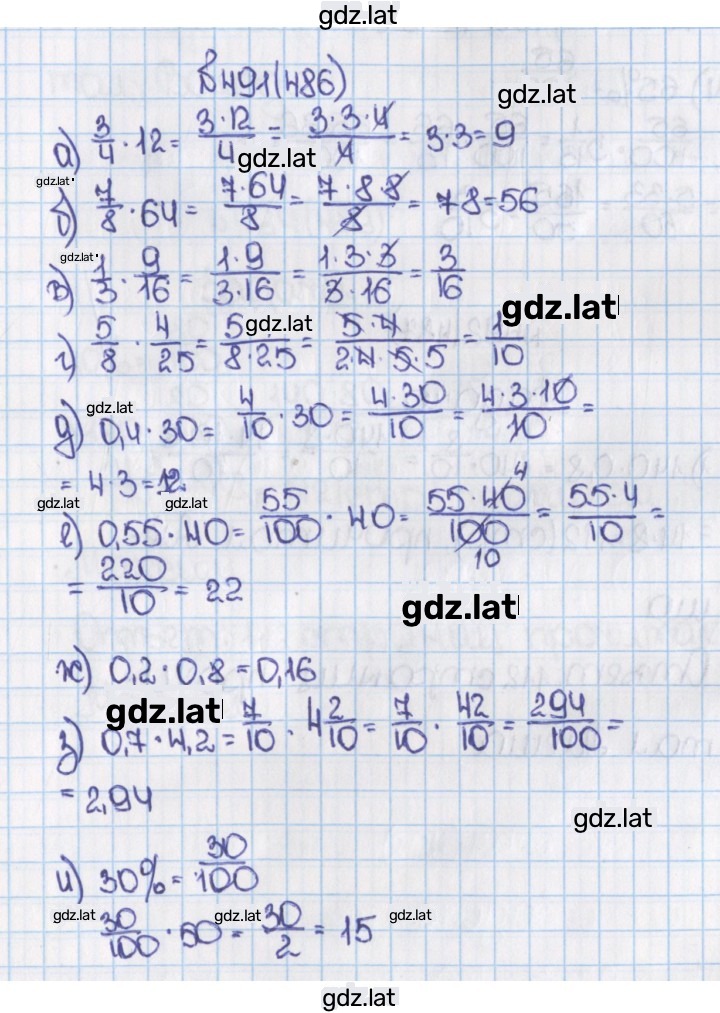 gdz.lat
В 491(486)
gdz.lat
а) 3/4 · 12 = 3·12/4 = 3·3·4/4 = 3·3=9
gdz.lat
gdz.lat
б) 7/8 · 64 = 7·64/8 = 7·8·8/8 = 7·8=56
gdz.lat
в) 1/3 · 9/16 = 1·9/3·16 = 1·3·3/3·16 = 3/16
gdz.lat
gdz.lat
г) 5/8 · 4/25 = 5/8·25 = 5·4/2·4·5·5 = 1/10
gdz.lat
д) 0,4·30= 4/10 · 30 = 4·30/10 = 4·3·10/10 =
= 4·3=12.
gdz.lat gdz.lat
е) 0,55·40= 55/100 · 40= 55·40/100 4 10 = 55·4/10 =
= 220/10 = 22
gdz.lat
ж) 0,2·0,8=0,16
gdz.lat
з) 0,7·4,2= 7/10 · 4 2/10 = 7/10 · 42/10 = 294/100 =
= 2,94
gdz.lat
и) 30%= 30/100
gdz.lat gdz.lat gdz.lat
30/100 · 50 = 30/2 = 15
gdz.lat